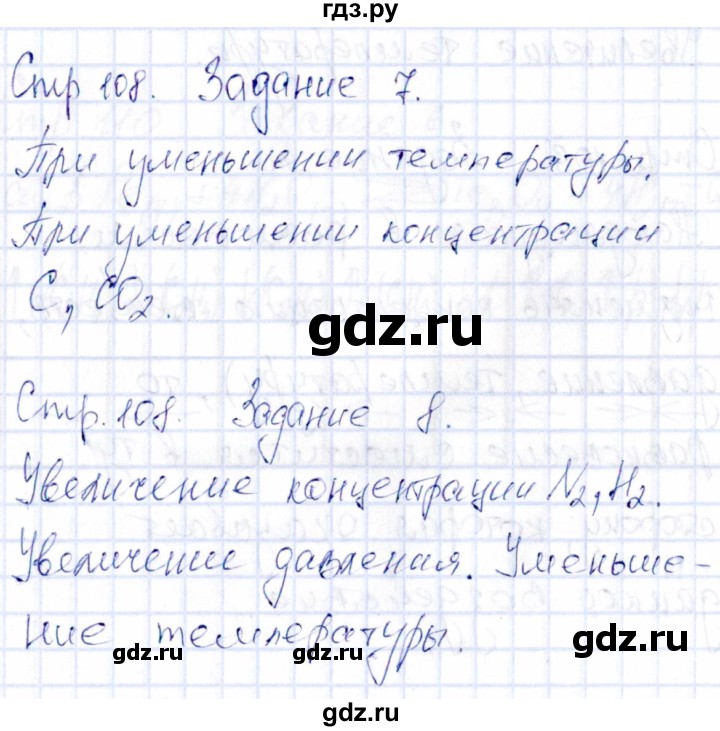 гдз.ру
Стр 108. Задание 7.
При уменьшении температуры.
При уменьшении концентрации
C, CO2.
gdz.ru
Стр. 108. Задание 8.
Увеличение концентрации N2, H2.
Увеличение давления. Уменьше-
ние температуры.
gdz.ru gdz.ru gdz.ru
gdz.ru